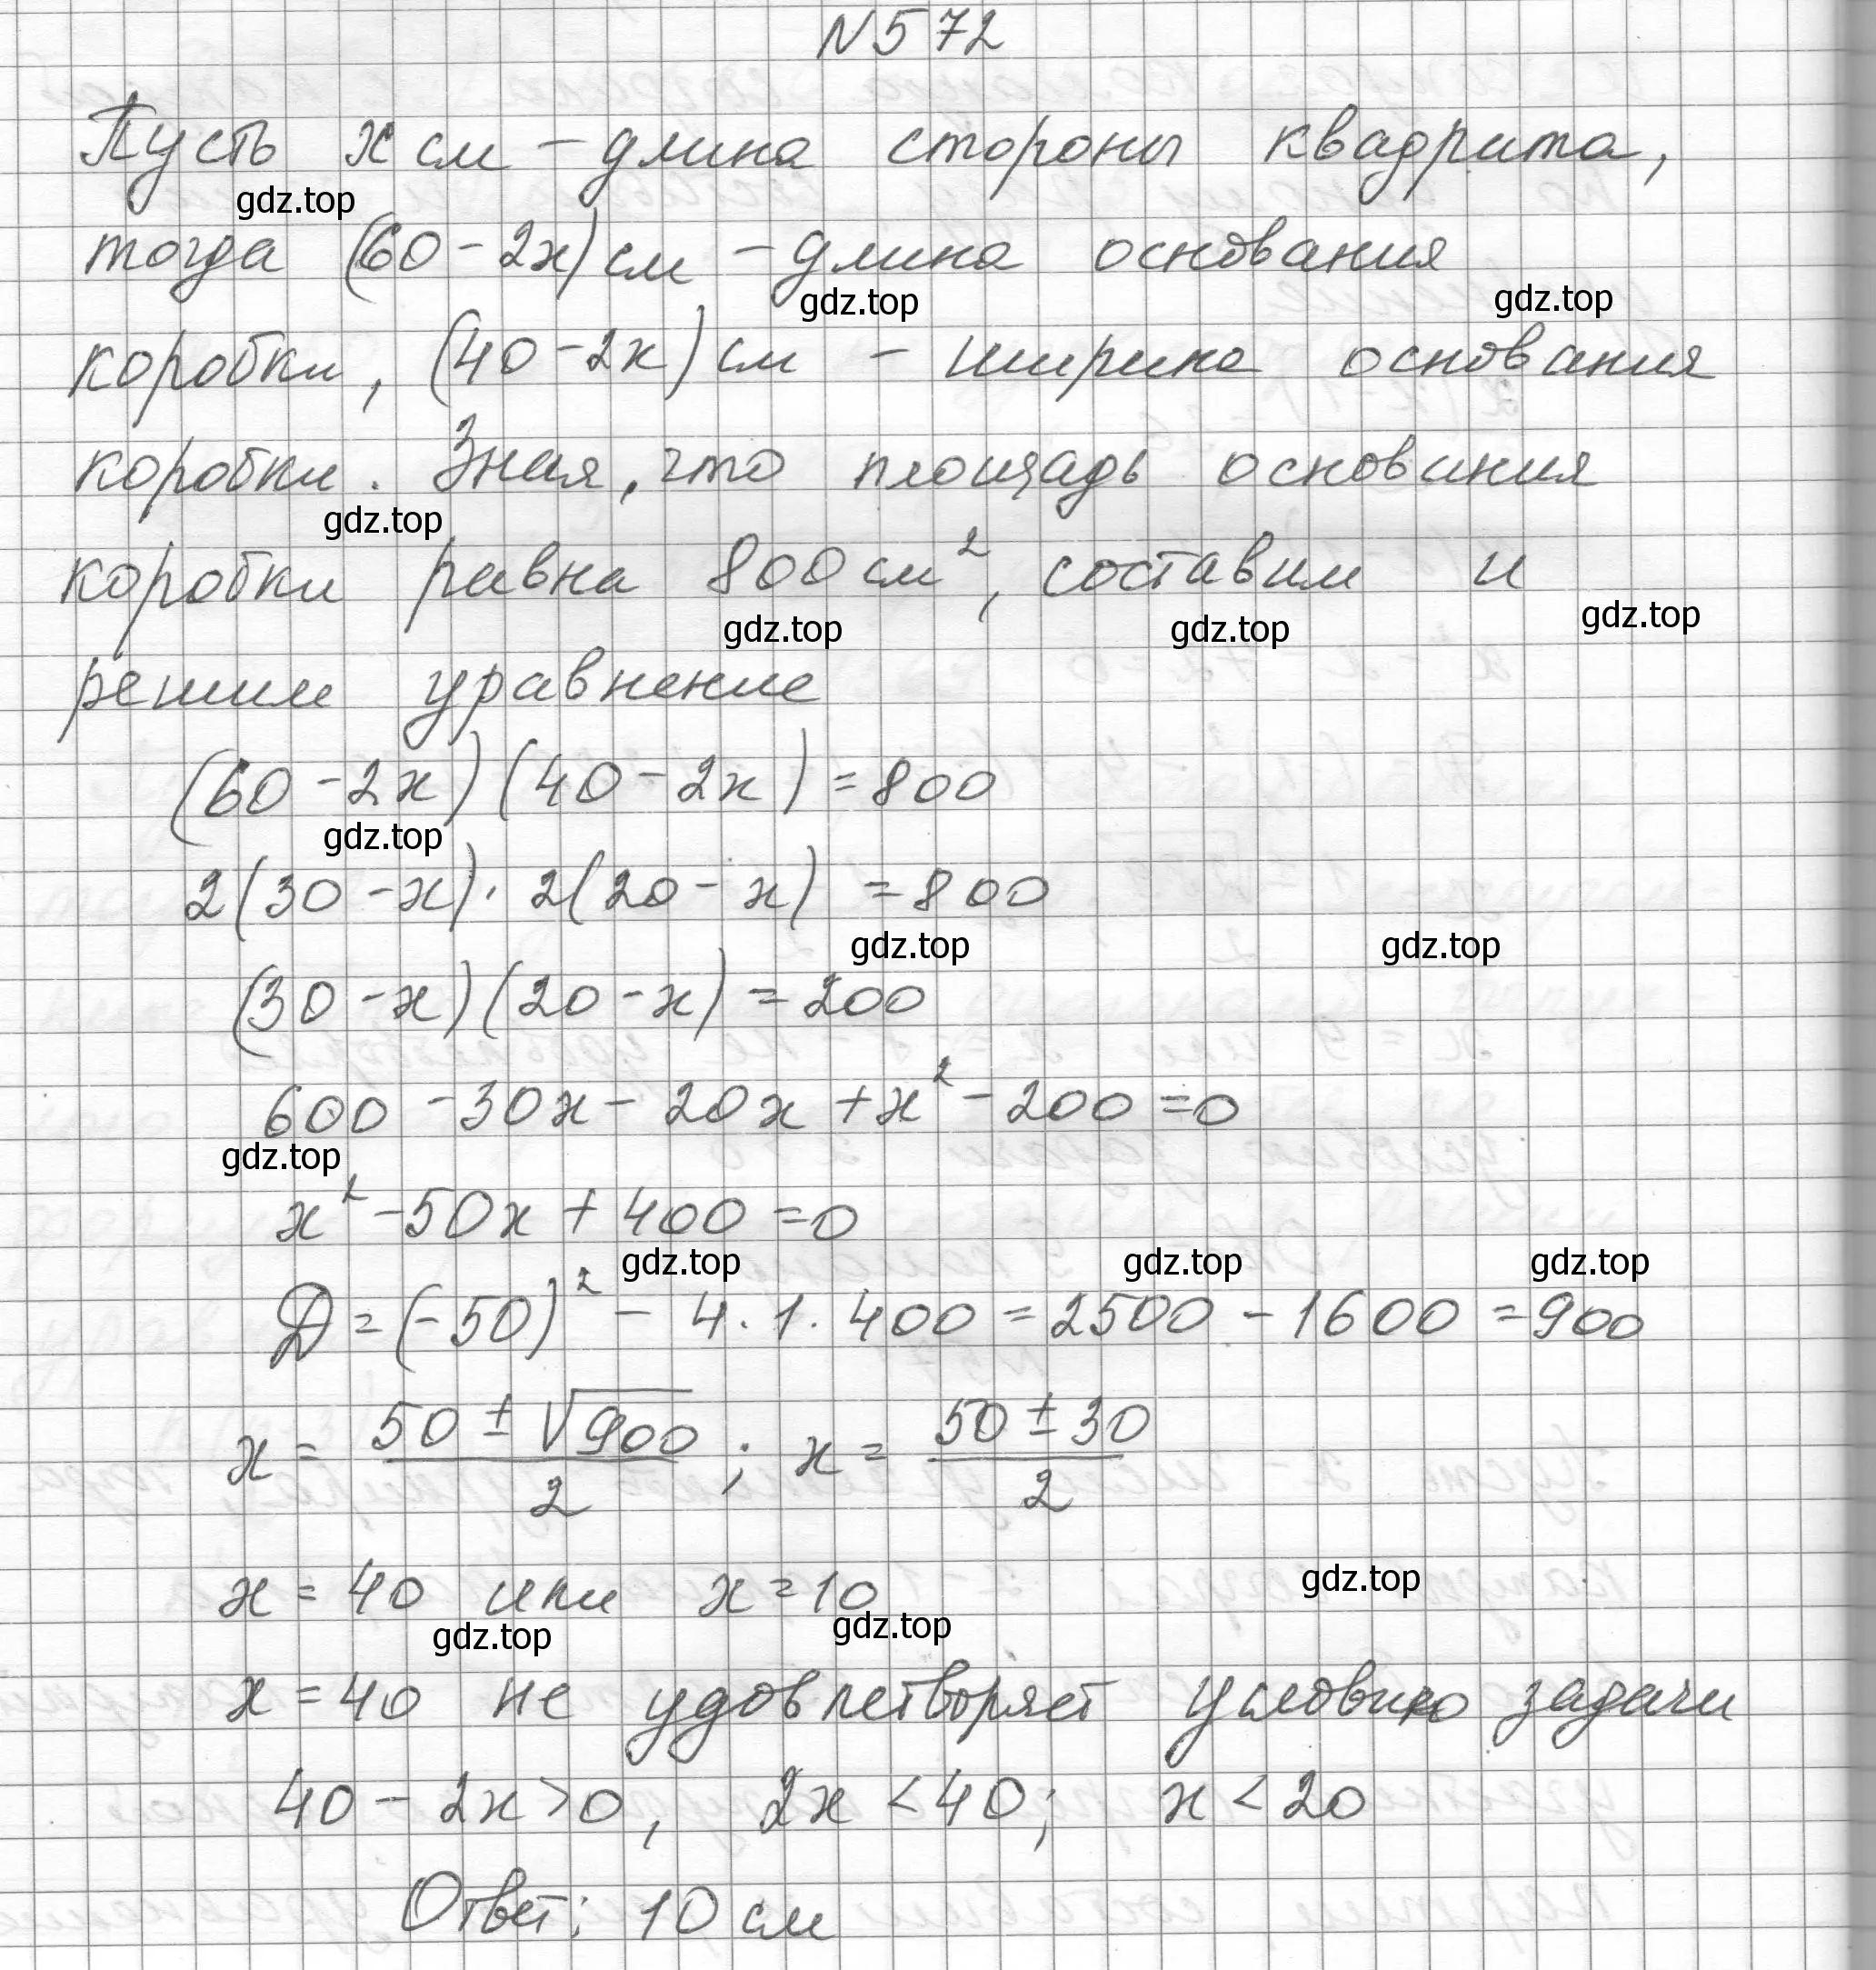 N572
Пусть x см – длина стороны квадрата,
gdz.top
тогда (60 - 2x) см – длина основания
gdz.top gdz.top
коробки, (40 - 2x) см – ширина основания
коробки. Зная, что площадь основания
gdz.top
коробки равна 800 см², составим и
gdz.top gdz.top gdz.top
решим уравнение
(60 - 2x)(40 - 2x) = 800
gdz.top
2(30 - x) · 2(20 - x) = 800
gdz.top gdz.top
(30 - x)(20 - x) = 200
600 - 30x - 20x + x² - 200 = 0
gdz.top
x² - 50x + 400 = 0
gdz.top gdz.top gdz.top
Д = (-50)² - 4 · 1 · 400 = 2500 - 1600 = 900
x = (50 ± √900)/2 ; x = (50 ± 30)/2
x = 40 или x = 10
gdz.top
gdz.top gdz.top
x = 40 не удовлетворяет условию задачи
40 - 2x > 0, 2x < 40; x < 20
Ответ: 10 см